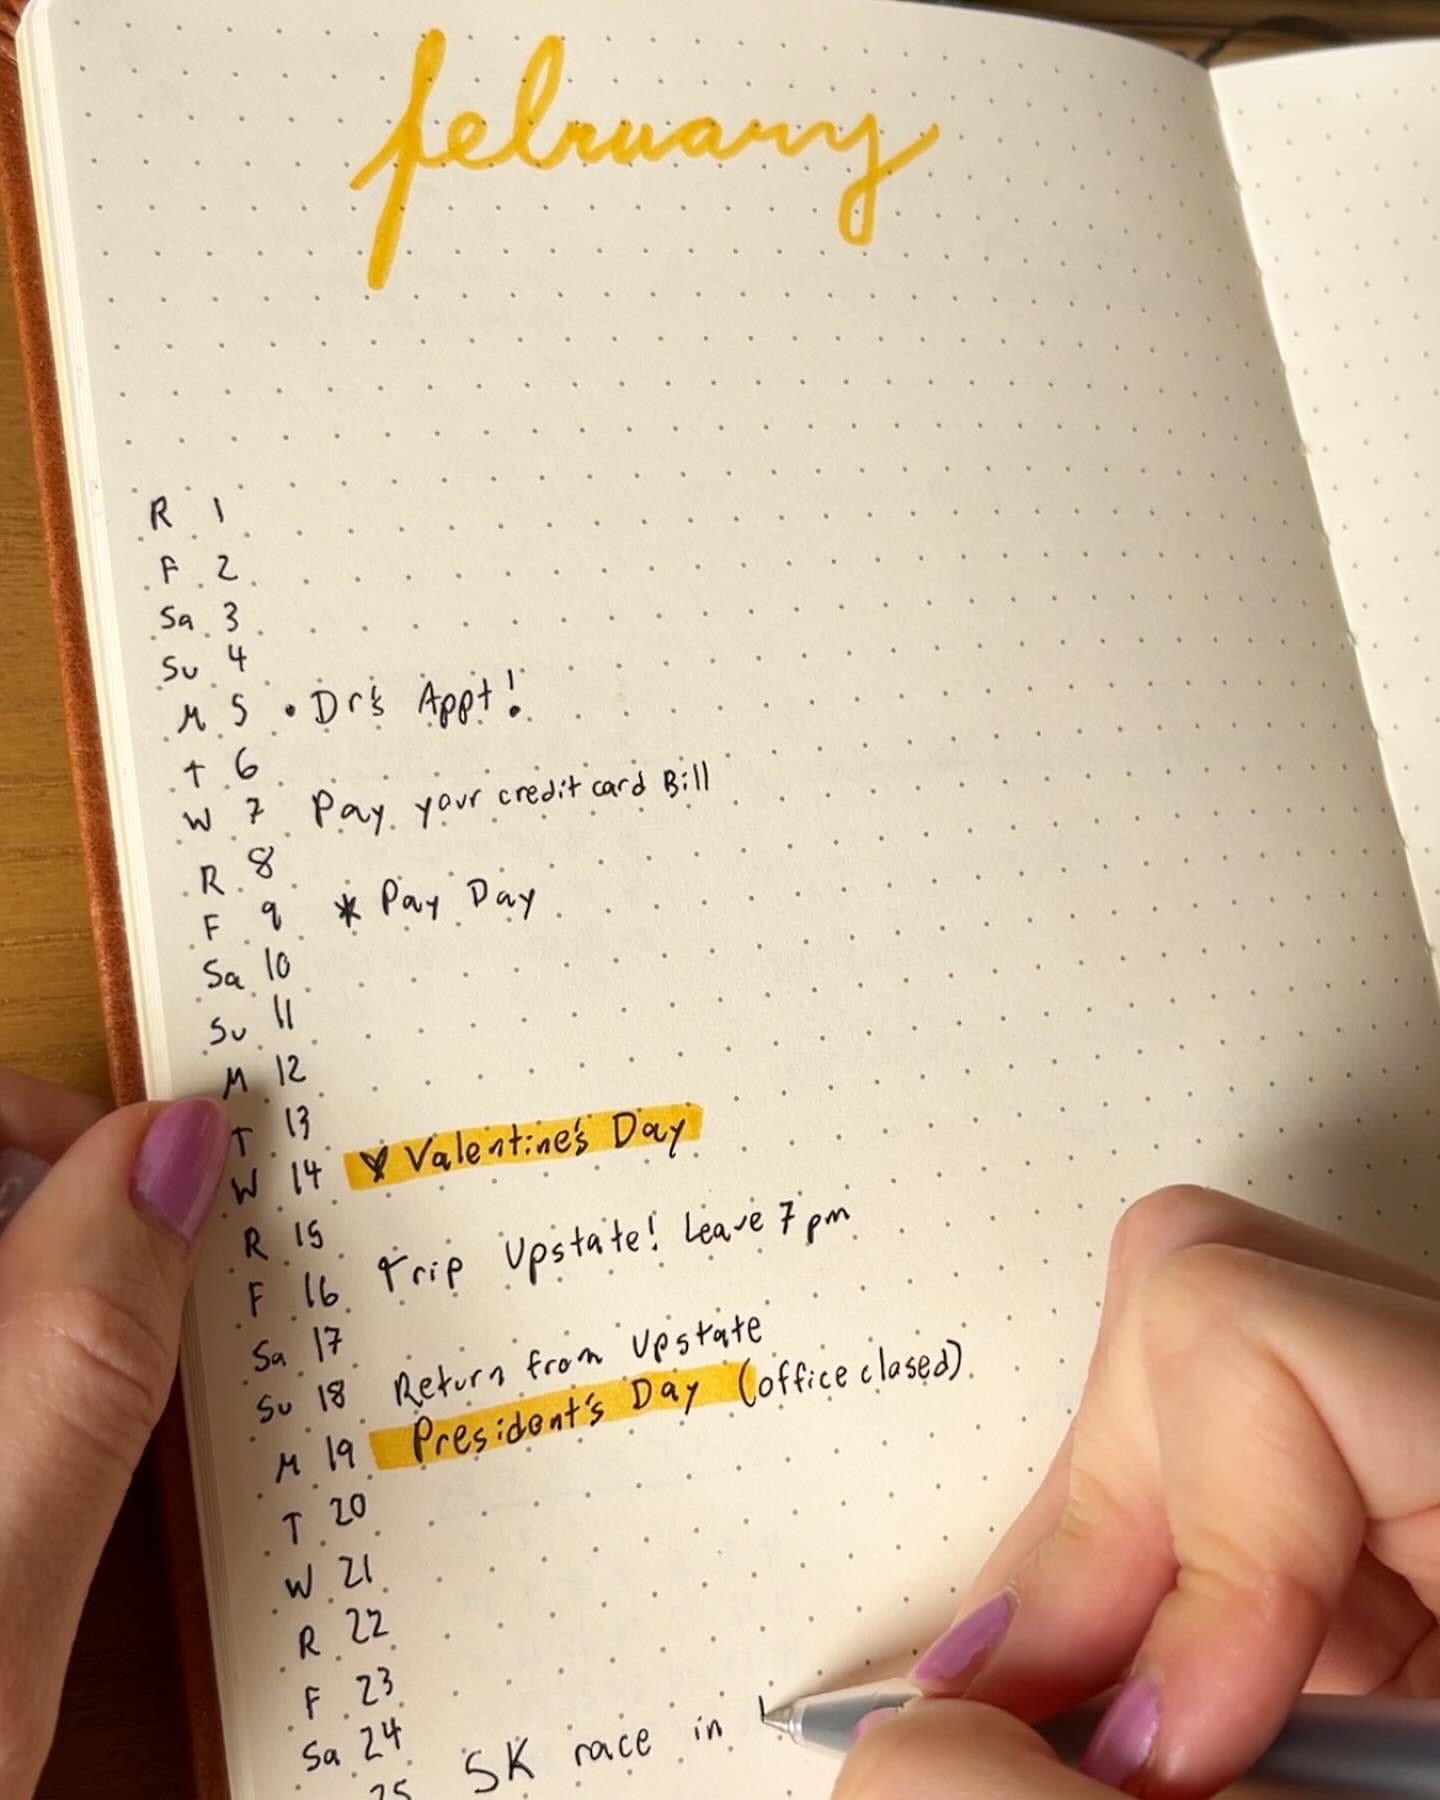 february
R 1
F 2
Sa 3
Su 4
M 5 • Dr's Appt!
T 6
W 7 Pay your credit card Bill
R 8
F 9 * Pay Day
Sa 10
Su 11
M 12
T 13
W 14 ♥ Valentine's Day
R 15
F 16 Trip Upstate! Leave 7 pm
Sa 17
Su 18 Return from Upstate
M 19 President's Day (office closed)
T 20
W 21
R 22
F 23
Sa 24
25 5K race in